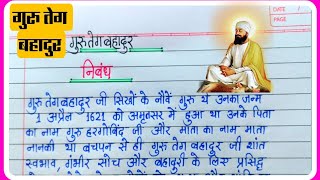 गुरु तेग
बहादुर
DATE
PAGE
गुरु तेग बहादुर
निबंध
गुरु तेग बहादुर जी सिखों के नौवें गुरु थे उनका जन्म
1 अप्रैल 1621 को अमृतसर में हुआ था उनके पिता
का नाम गुरु हरगोबिंद जी और माता का नाम माता
नानकी था बचपन से ही गुरु तेग बहादुर जी शांत
स्वभाव, गंभीर सोच और बहादुरी के लिए प्रसिद्ध